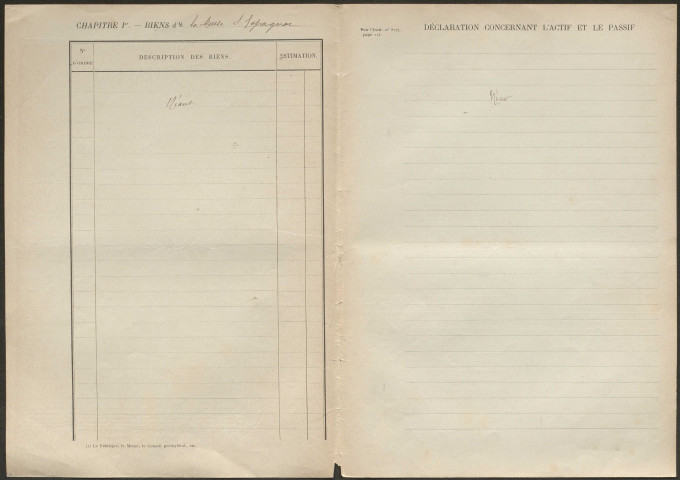 CHAPITRE Ier. — BIENS de la
N°
D'ORDRE.
DESCRIPTION DES BIENS.
ESTIMATION.
Néant
(1) La Fabrique, la Mense, le Conseil presbytéral, etc.
DÉCLARATION CONCERNANT L'ACTIF ET LE PASSIF
Néant